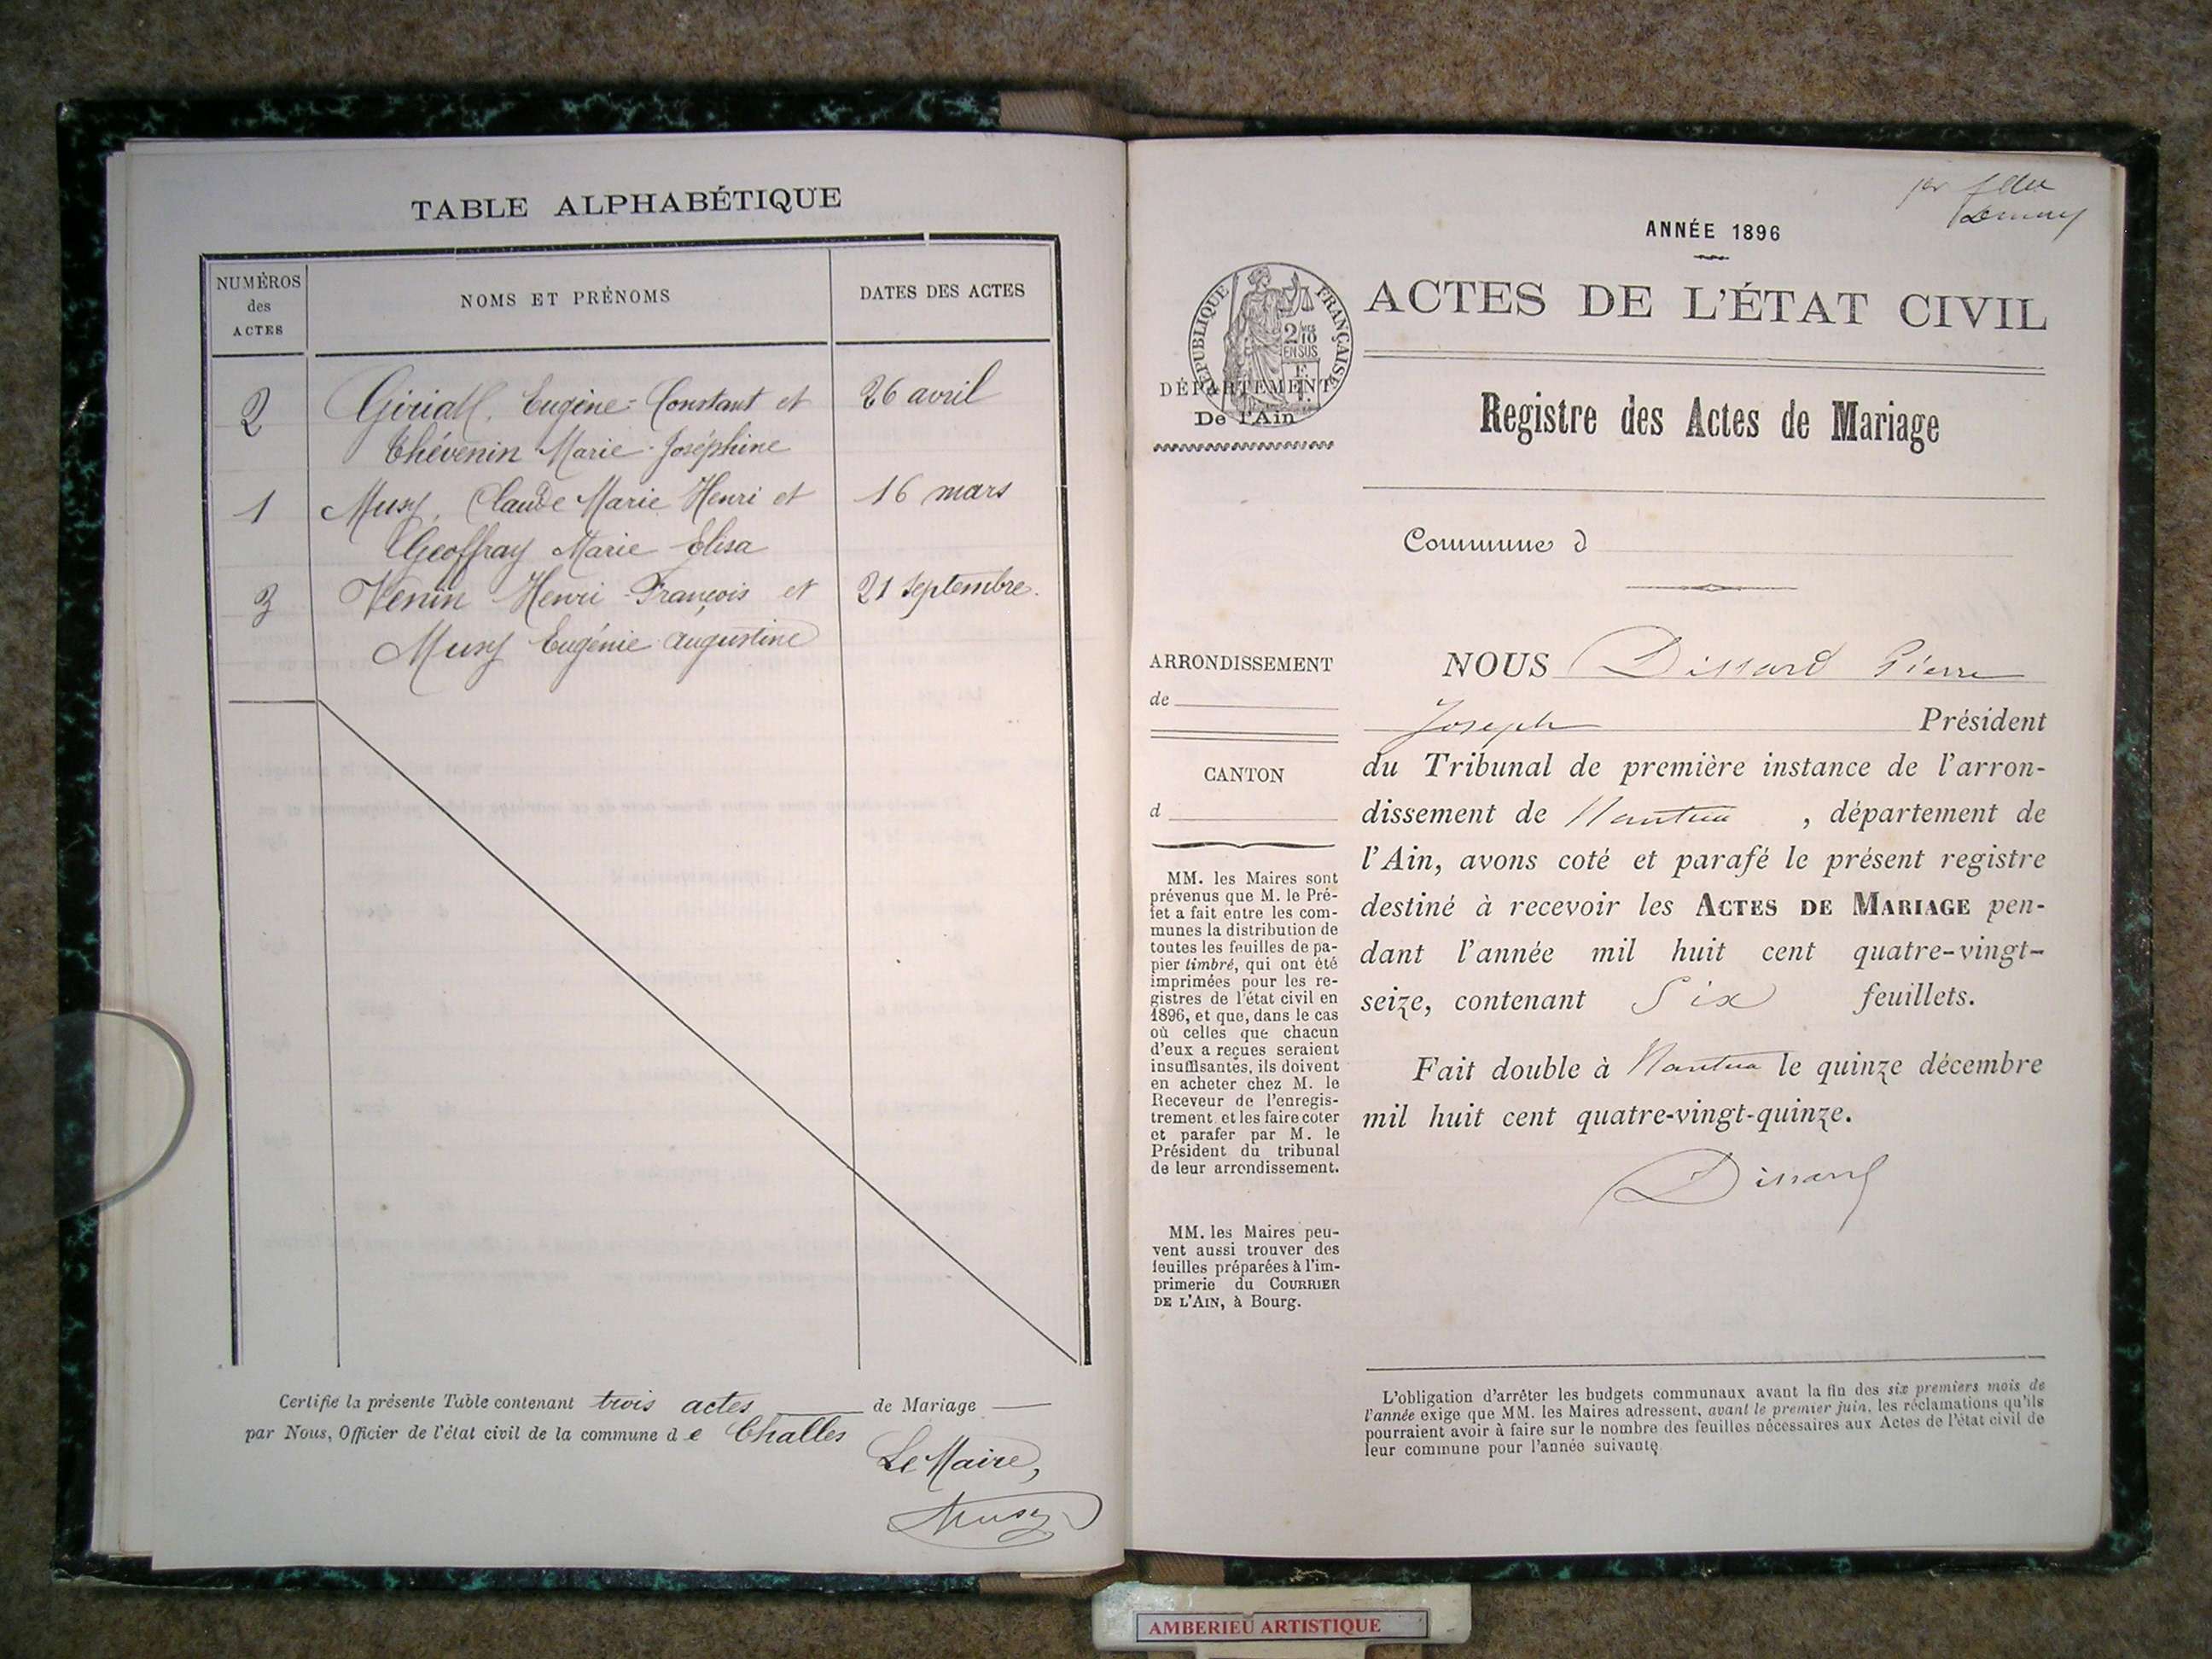 TABLE ALPHABÉTIQUE
NUMÉROS
des
ACTES
NOMS ET PRÉNOMS
DATES DES ACTES
2
Eugène-Constant et
26 avril
Thévenin Marie-Joséphine
1
Musy, Claude Marie Henri et
16 mars
Geoffray Marie Élisa
3
Venin Henri-François et
21 septembre.
Musy Eugénie augustine
Certifie la présente Table contenant trois actes de Mariage
par Nous, Officier de l'état civil de la commune de Challes
Le Maire,
Musy
ANNÉE 1896
ACTES DE L'ÉTAT CIVIL
RÉPUBLIQUE FRANÇAISE
2/10
EN SUS
DÉPARTEMENT
De l'Ain
Registre des Actes de Mariage
Commune d
ARRONDISSEMENT
de
CANTON
d
MM. les Maires sont
prévenus que M. le Pré-
fet a fait entre les com-
munes la distribution de
toutes les feuilles de pa-
pier timbré, qui ont été
imprimées pour les re-
gistres de l'état civil en
1896, et que, dans le cas
où celles que chacun
d'eux a reçues seraient
insuffisantes, ils doivent
en acheter chez M. le
Receveur de l'enregis-
trement et les faire coter
et parafer par M. le
Président du tribunal
de leur arrondissement.
MM. les Maires peu-
vent aussi trouver des
feuilles préparées à l'im-
primerie du COURRIER
DE L'AIN, à Bourg.
NOUS Dissard Pierre
Joseph Président
du Tribunal de première instance de l'arron-
dissement de Nantua, département de
l'Ain, avons coté et parafé le présent registre
destiné à recevoir les ACTES DE MARIAGE pen-
dant l'année mil huit cent quatre-vingt-
seize, contenant Six feuillets.
Fait double à Nantua le quinze décembre
mil huit cent quatre-vingt-quinze.
Dissard
L'obligation d'arrêter les budgets communaux avant la fin des six premiers mois de
l'année exige que MM. les Maires adressent, avant le premier juin, les réclamations qu'ils
pourraient avoir à faire sur le nombre des feuilles nécessaires aux Actes de l'état civil de
leur commune pour l'année suivante.
AMBERIEU ARTISTIQUE